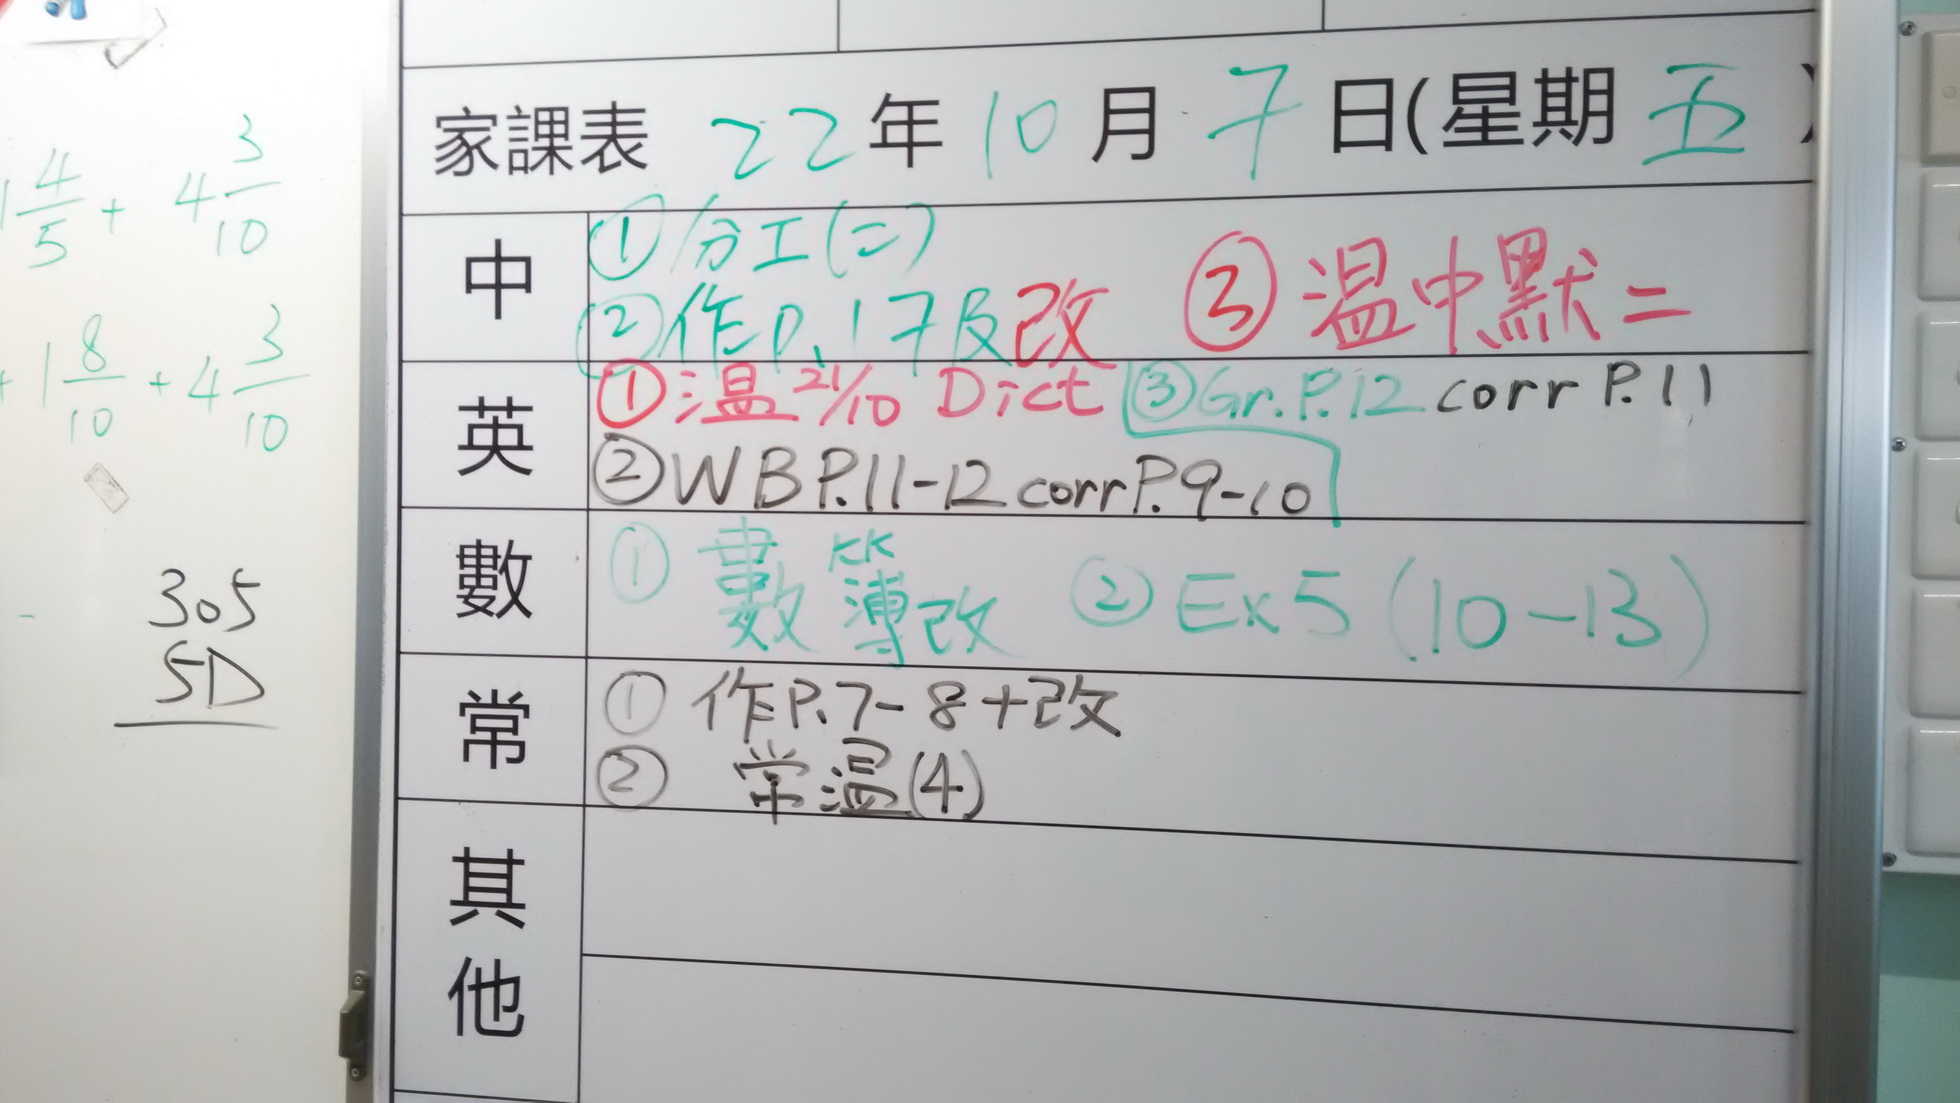 1 4/5 + 4 3/10
+ 1 8/10 + 4 3/10
305
5D
家課表 22年10月7日(星期五)
中
①分工(二)
②作P.17及改 ③温中默二
英
①温21/10 Dict ③Gr.P.12 corr P.11
②WB P.11-12 corr P.9-10
數
①數簿改 ②Ex5 (10-13)
常
①作P.7-8+改
②常温(4)
其他